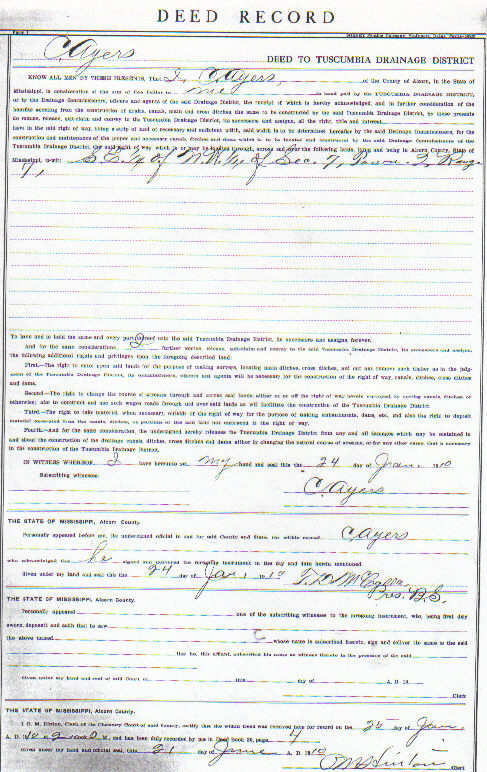 DEED RECORD
C. Ayers
DEED TO TUSCUMBIA DRAINAGE DISTRICT
KNOW ALL MEN BY THESE PRESENTS, That I, C. Ayers, of the County of Alcorn, in the State of
Mississippi, in consideration of the sum of One Dollar to me in hand paid by the TUSCUMBIA DRAINAGE DISTRICT,
or by the Drainage Commissioners, officers and agents of the said Drainage District, the receipt of which is hereby acknowledged, and in further consideration of the
benefits accruing from the construction of drains, canals, main and cross ditches the same to be constructed by the said Tuscumbia Drainage District, by these presents
do remise, release, quit-claim and convey to the Tuscumbia Drainage District, its successors and assigns, all the right, title and interest
have in the said right of way, being a strip of land of necessary and sufficient width, said width to be determined hereafter by the said Drainage Commissioners, for the
construction and maintenance of the proper and necessary canals, ditches and drains which is to be located and constructed by the said Drainage Commissioners of the
Tuscumbia Drainage District, the said right of way which is or may be located through, across and over the following lands, lying and being in Alcorn County, State of
Mississippi, to-wit: S.E. 1/4 of N.W. 1/4 of Sec. 7, Town. 2, Range
7,
To have and to hold the same and every part thereof unto the said Tuscumbia Drainage District, its successors and assigns, forever.
And for the same considerations, I further remise, release, quit-claim and convey to the said Tuscumbia Drainage District, its successors and assigns,
the following additional rights and privileges upon the foregoing described land:
First.—The right to enter upon said lands for the purpose of making surveys, locating main ditches, cross ditches, and cut and remove such timber as in the judg-
ment of the Tuscumbia Drainage District, its commissioners, officers and agents will be necessary for the construction of the right of way, canals, ditches, cross ditches
and dams.
Second.—The right to change the course of streams through and across said lands, either on or off the right of way herein conveyed, by cutting canals, ditches, or
otherwise; also to construct and use such wagon roads through and over said lands as will facilitate the construction of the Tuscumbia Drainage District.
Third.—The right to take material when necessary, outside of the right of way for the purpose of making embankments, dams, etc., and also the right to deposit
material excavated from the canals, ditches, on portions of the said land not embraced in the right of way.
Fourth.—And for the same consideration, the undersigned hereby releases the Tuscumbia Drainage District from any and all damages which may be sustained in
and about the construction of the drainage canals, ditches, cross ditches and dams either by changing the natural course of streams, or for any other cause, that is necessary
in the construction of the Tuscumbia Drainage District.
IN WITNESS WHEREOF, I have hereunto set my hand and seal this the 24 day of 1910
Subscribing witnesses:
C. Ayers
THE STATE OF MISSISSIPPI, Alcorn County.
Personally appeared before me, the undersigned official in and for said County and State, the within named C. Ayers
who acknowledged that he signed and delivered the foregoing instrument on the day and date herein mentioned.
Given under my hand and seal this the 24 day of 1910
Pres. B.S.
THE STATE OF MISSISSIPPI, Alcorn County.
Personally appeared one of the subscribing witnesses to the foregoing instrument, who, being first duly
sworn, deposeth and saith that he saw
the above named whose name is subscribed thereto, sign and deliver the same to the said
that he, this affiant, subscribed his name as witness thereto in the presence of the said
Given under my hand and seal of said Court at this day of A. D. 19
Clerk
THE STATE OF MISSISSIPPI, Alcorn County.
I O. M. Hinton, Clerk of the Chancery Court of said County, certify that the within Deed was received here for record on the 25 day of
A. D. 1910 at 2 o'clock M., and has been duly recorded by me in Deed Book 20, page 4
Given under my hand and official seal, this 31 day of A. D. 1910
O M Hinton
Clerk